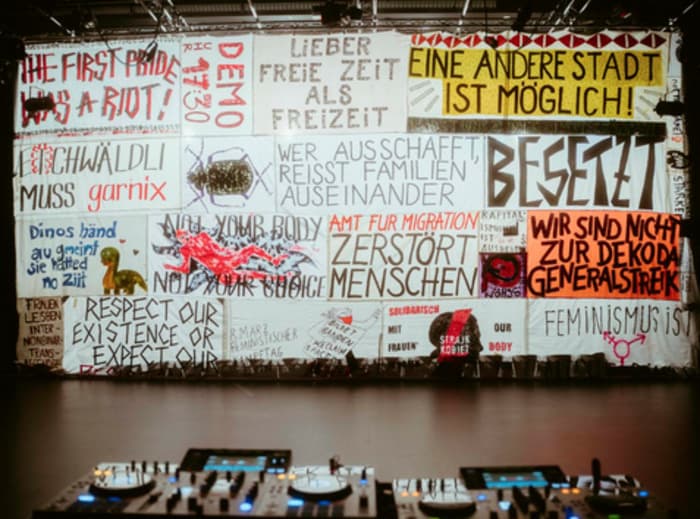 THE FIRST PRIDE
WAS A RIOT!
DEMO
UHR 17:30
LiEBER
FREiE ZEiT
ALS
FREiZEiT
EINE ANDERE STADT
IST MÖGLICH!
MUSS garnix
WER AUSSCHAFFT,
REISST FAMILIEN
AUSEINANDER
BESETZT
Dinos händ
au gmeint
sie hätted
no Ziit
NOT YOUR BODY
NOT YOUR CHOICE
AMT FÜR MIGRATION
ZERSTÖRT
MENSCHEN
KAPITAL-
ISMUS
IST
WIR SIND NICHT
ZUR DEKO DA
GENERALSTREIK
FRAUEN
LESBEN
INTER-
NONBINÄR
TRANS-
RESPECT OUR
EXISTENCE OR
EXPECT OUR
8. MÄRZ
FEMINISTISCHER
KAMPFTAG
SOLIDARISCH
MIT
FRAUEN
STRAJK
KOBIET
OUR
BODY
FEMINISMUS IST